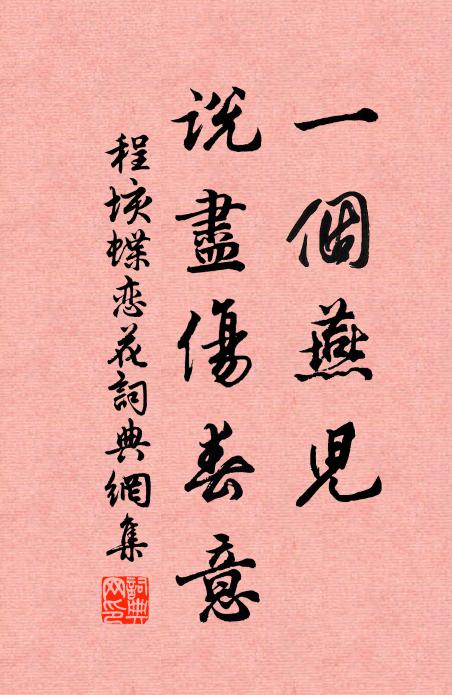 一個燕兒
説盡傷春意
程垓蝶恋花詞典網集
詞典网印